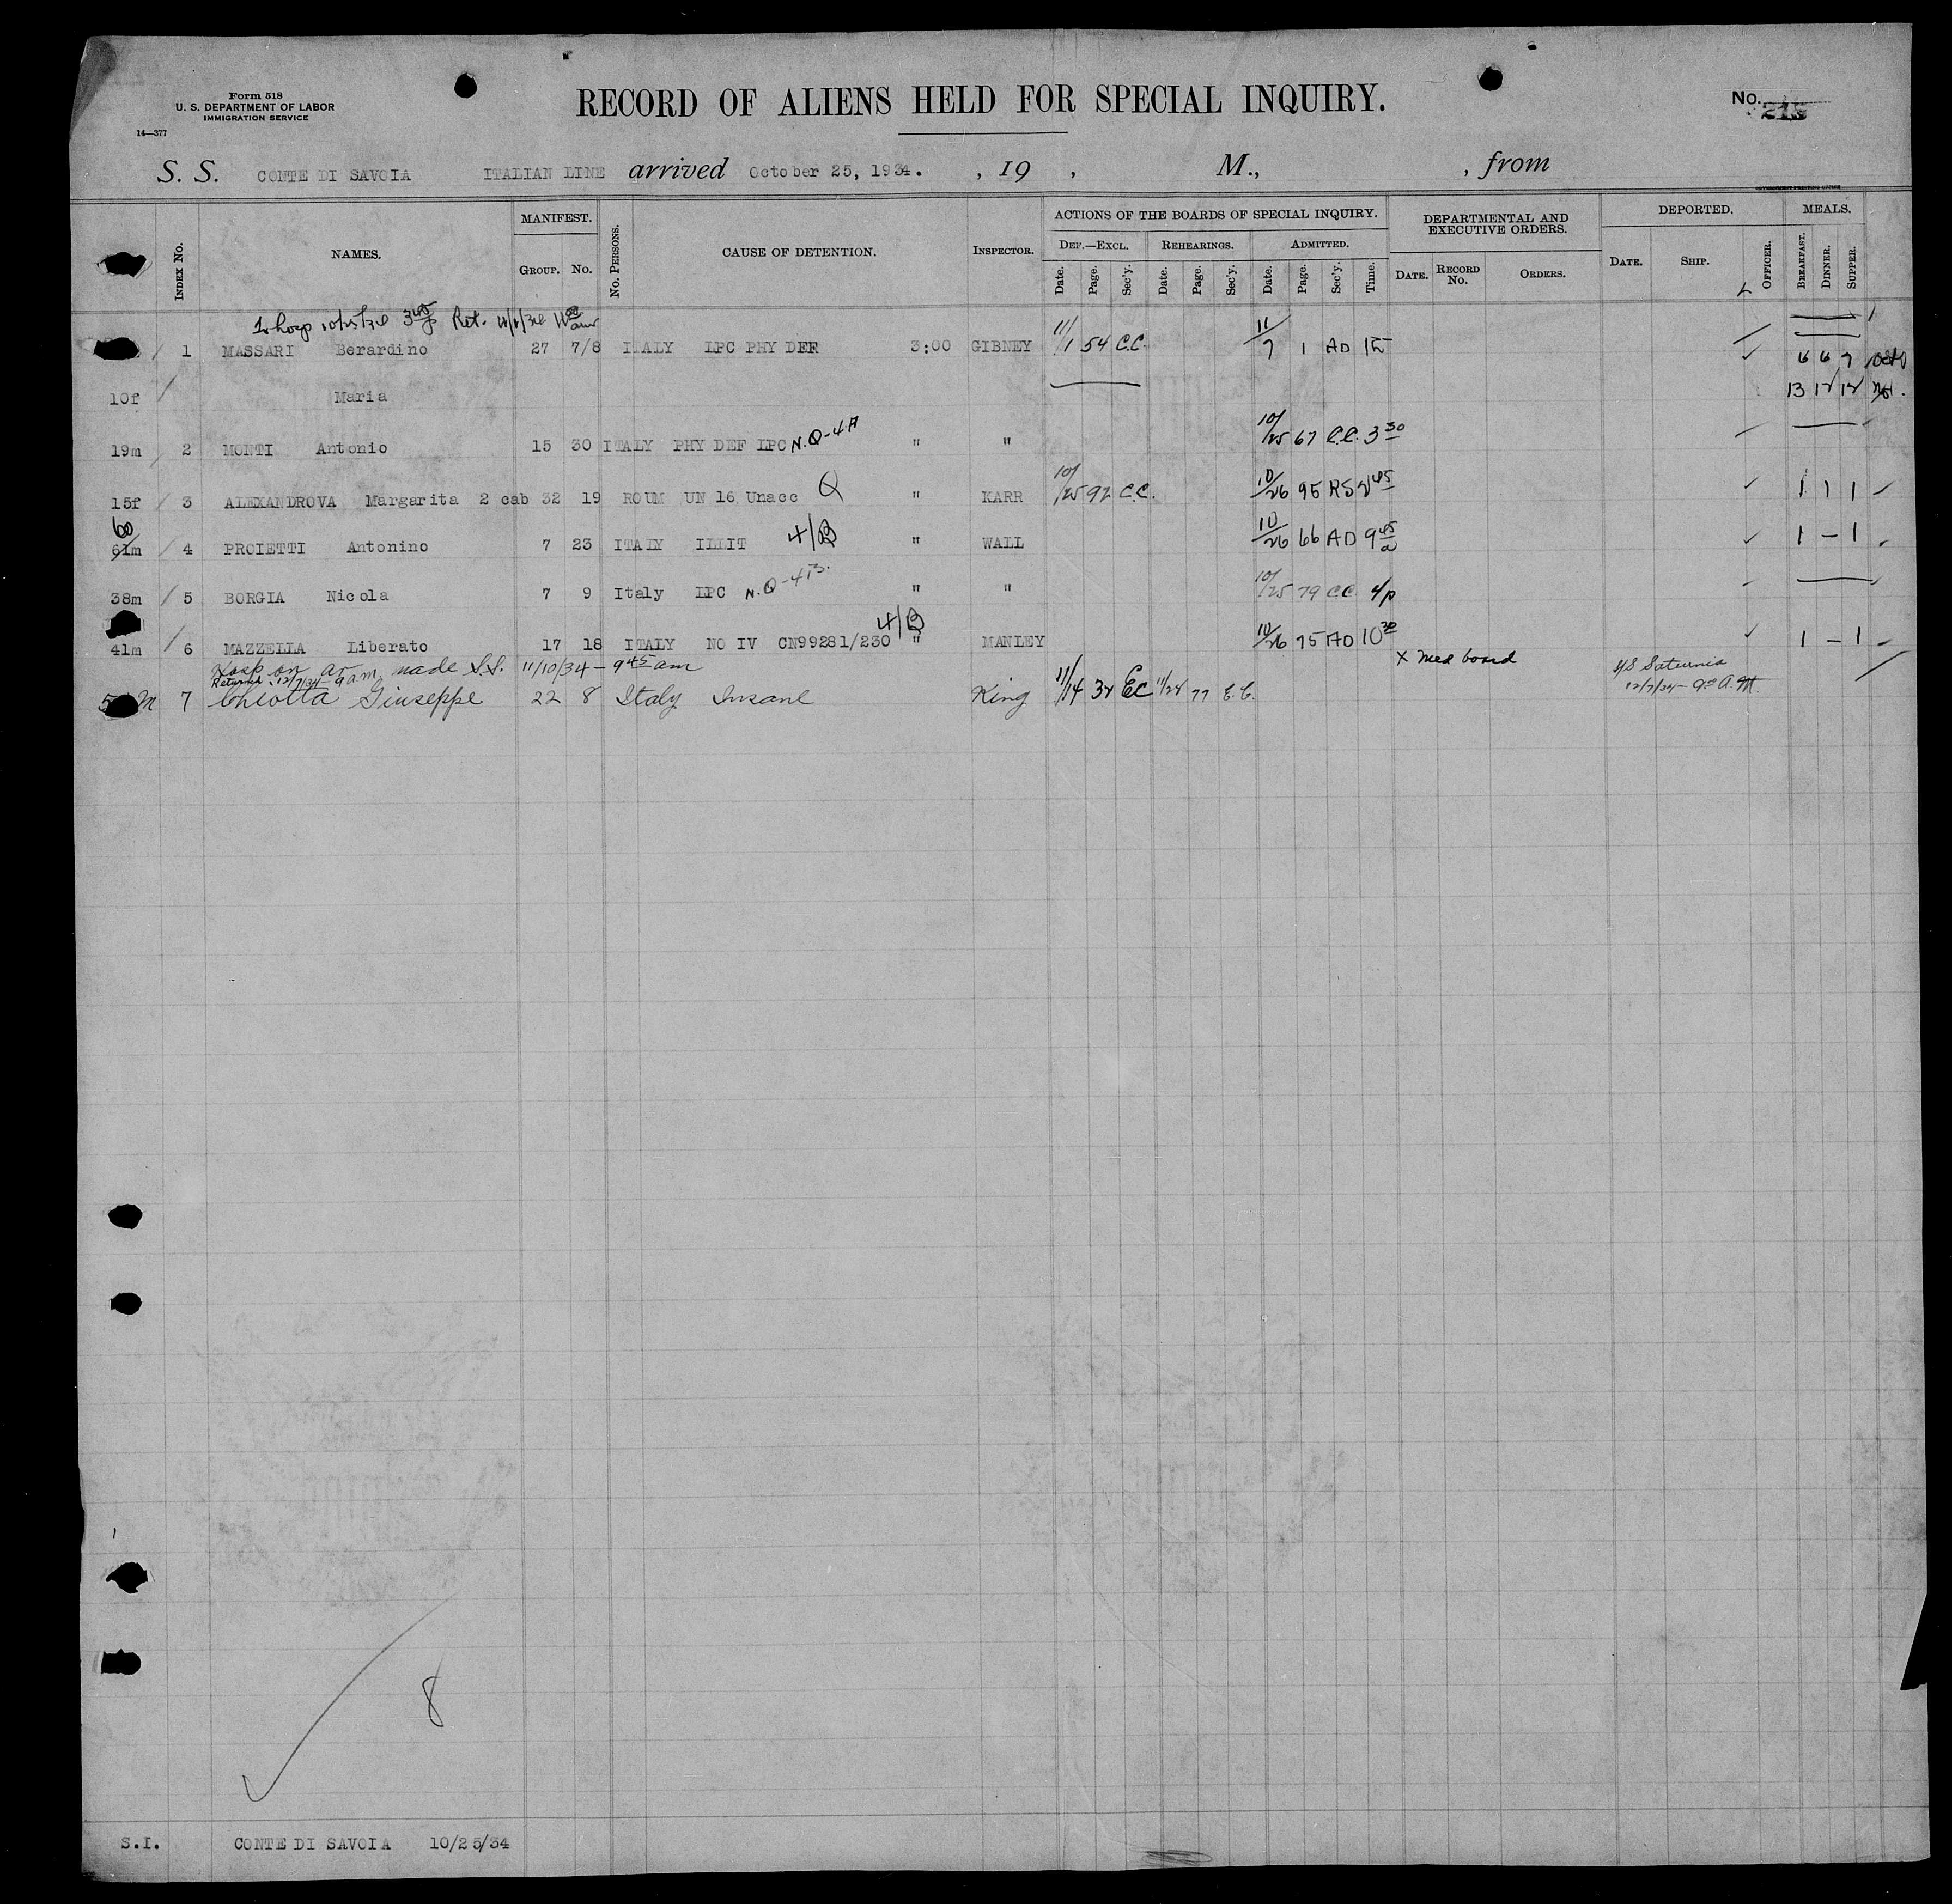 Form 518
U. S. DEPARTMENT OF LABOR
IMMIGRATION SERVICE
14—377
RECORD OF ALIENS HELD FOR SPECIAL INQUIRY.
No. 215
S. S. CONTE DI SAVOIA ITALIAN LINE arrived October 25, 1934. , 19 , M., , from
GOVERNMENT PRINTING OFFICE
INDEX No. NAMES. MANIFEST. GROUP. No. No. PERSONS. CAUSE OF DETENTION. INSPECTOR. ACTIONS OF THE BOARDS OF SPECIAL INQUIRY. DEPARTMENTAL AND EXECUTIVE ORDERS. DEPORTED. MEALS.
DEF.—EXCL. REHEARINGS. ADMITTED.
Date. Page. Sec'y. Date. Page. Sec'y. Date. Page. Sec'y. Time. DATE. RECORD No. ORDERS. DATE. SHIP. OFFICER. BREAKFAST. DINNER. SUPPER.
3 45 p Ret. am
/ 1 MASSARI Berardino 27 7/8 ITALY LPC PHY DEF 3:00 GIBNEY 11/1 54 C.C. 11/7 1 AD 6 6 7 Oct
10f / Maria 13 12 12 Nov.
19m / 2 MONTI Antonio 15 30 ITALY PHY DEF LPC N.Q-4A " " 10/25 67 C.C. 3 30
15f / 3 ALEXANDROVA Margarita 2 cab 32 19 ROUM UN 16 Unacc Q " KARR 10/25 92 C.C. 10/26 95 RS 2 45 1 1 1
60
61m / 4 PROIETTI Antonino 7 23 ITALY ILLIT 4/B " WALL 10/26 66 AD 9 45 a 1 – 1
38m / 5 BORGIA Nicola 7 9 Italy LPC N.Q-4B. " " 10/25 79 CC 4/p
41m / 6 MAZZELLA Liberato 17 18 ITALY NO IV CN99281/230 4/B " MANLEY 10/26 75 AD 10 30 1 – 1
Hosp on ar made S.I. 11/10/34 – 9 45 am X med board S/S Saturnia
Returned 12/7/34 – 9 am 12/7/34 – 9 00 A.M.
M 7 Chiotta Giuseppe 22 8 Italy Insane King 11/14 32 EC 11/28 77 E.C.
8
S.I. CONTE DI SAVOIA 10/25/34